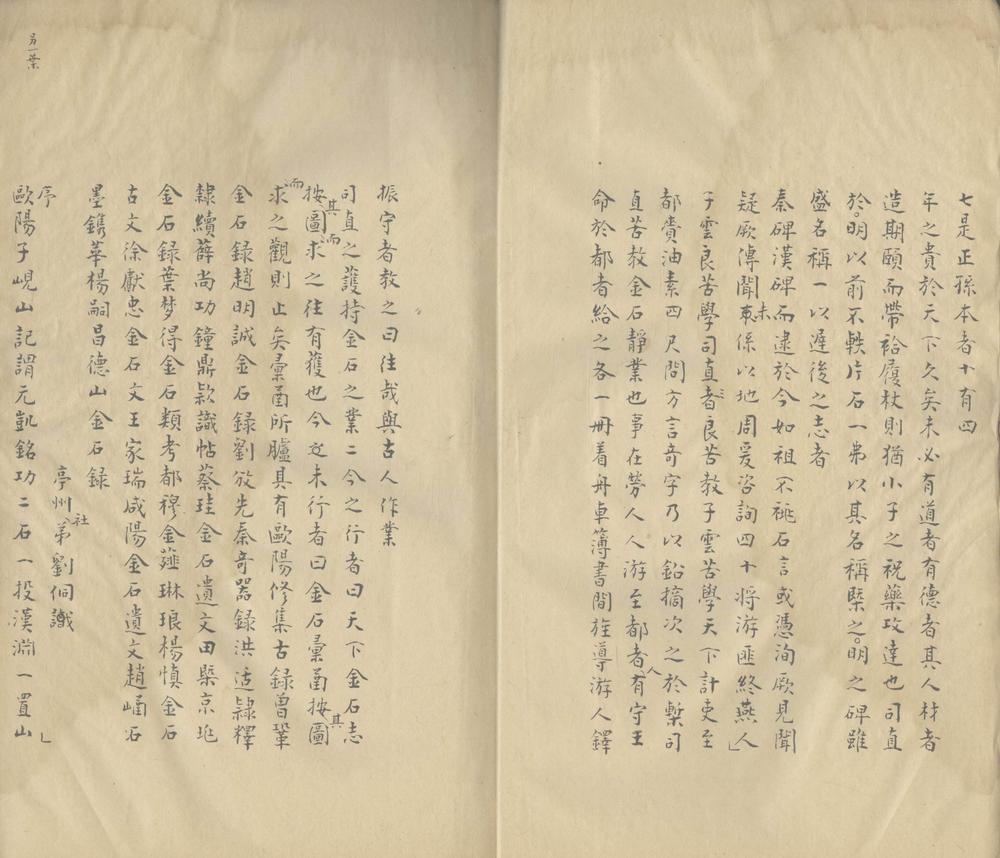 七是正孫本者十有四
年之貴於天下久矣未必有道者有德者其人材者
造期頤而帶袷履杖則猶小子之祝藥攻達也司直
於明以前不軼片石一弗以其名稱槩之明之碑雖
盛名稱一以遲後之志者
秦碑漢碑而逮於今如祖不祧石言或憑洵厥見聞
疑厥傳聞未係以地周爰咨詢四十將游匪終燕人
子雲良苦學司直者良苦教子雲苦學天下計吏至
都賫油素四尺問方言奇字乃以鉛摘次之於槧司
直苦教金石靜業也事在勞人人游至都者有守王
人
命於都者給之各一冊着冊卓簿書間旌導游人鐸
振守者教之曰往哉與古人作業
司直之護持金石之業二今之行者曰天下金石志
其
按圖求之往有獲也今之未行者曰金石彙啚按圖
而
其
求之觀則止矣彙啚所臚具有歐陽修集古錄曾鞏
而
金石錄趙明誠金石錄劉攽先秦奇器錄洪适隸釋
隸續薛尚功鐘鼎款識帖蔡珪金石遺文田槩京兆
金石錄葉梦得金石類考都穆金薤琳琅楊慎金石
古文徐獻忠金石文王家瑞咸陽金石遺文趙崡石
墨鐫華楊嗣昌德山金石錄
亭州弟劉侗識
社
序
歐陽子峴山記謂元凱銘功二石一投漢淵一置山
另一葉